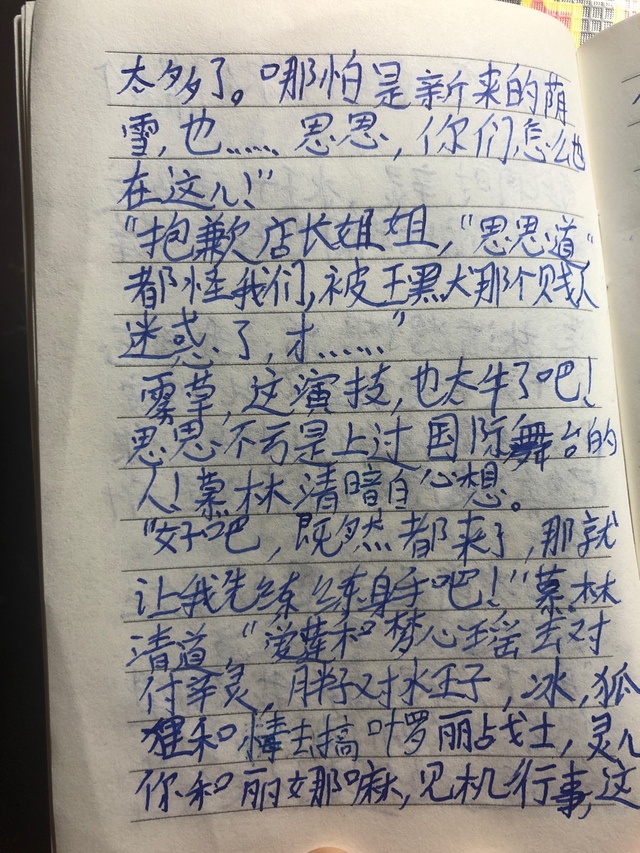 太多了。哪怕是新来的荫
雪,也…… 思思,你们怎么也
在这儿!"
"抱歉店长姐姐,"思思道"
都怪我们,被王黑犬那个贱人
迷惑了,才……"
雾草,这演技,也太牛了吧!
思思不亏是上过国际舞台的
人!慕林清暗自心想。
"好吧,既然都来了,那就
让我先练练身手吧!"慕林
清道,"爱莲和梦心瑶去对
付辛灵,胖子对水王子,冰,狐
狸和情去搞叶罗丽战士,灵儿
你和丽娜哪嘛,见机行事,这